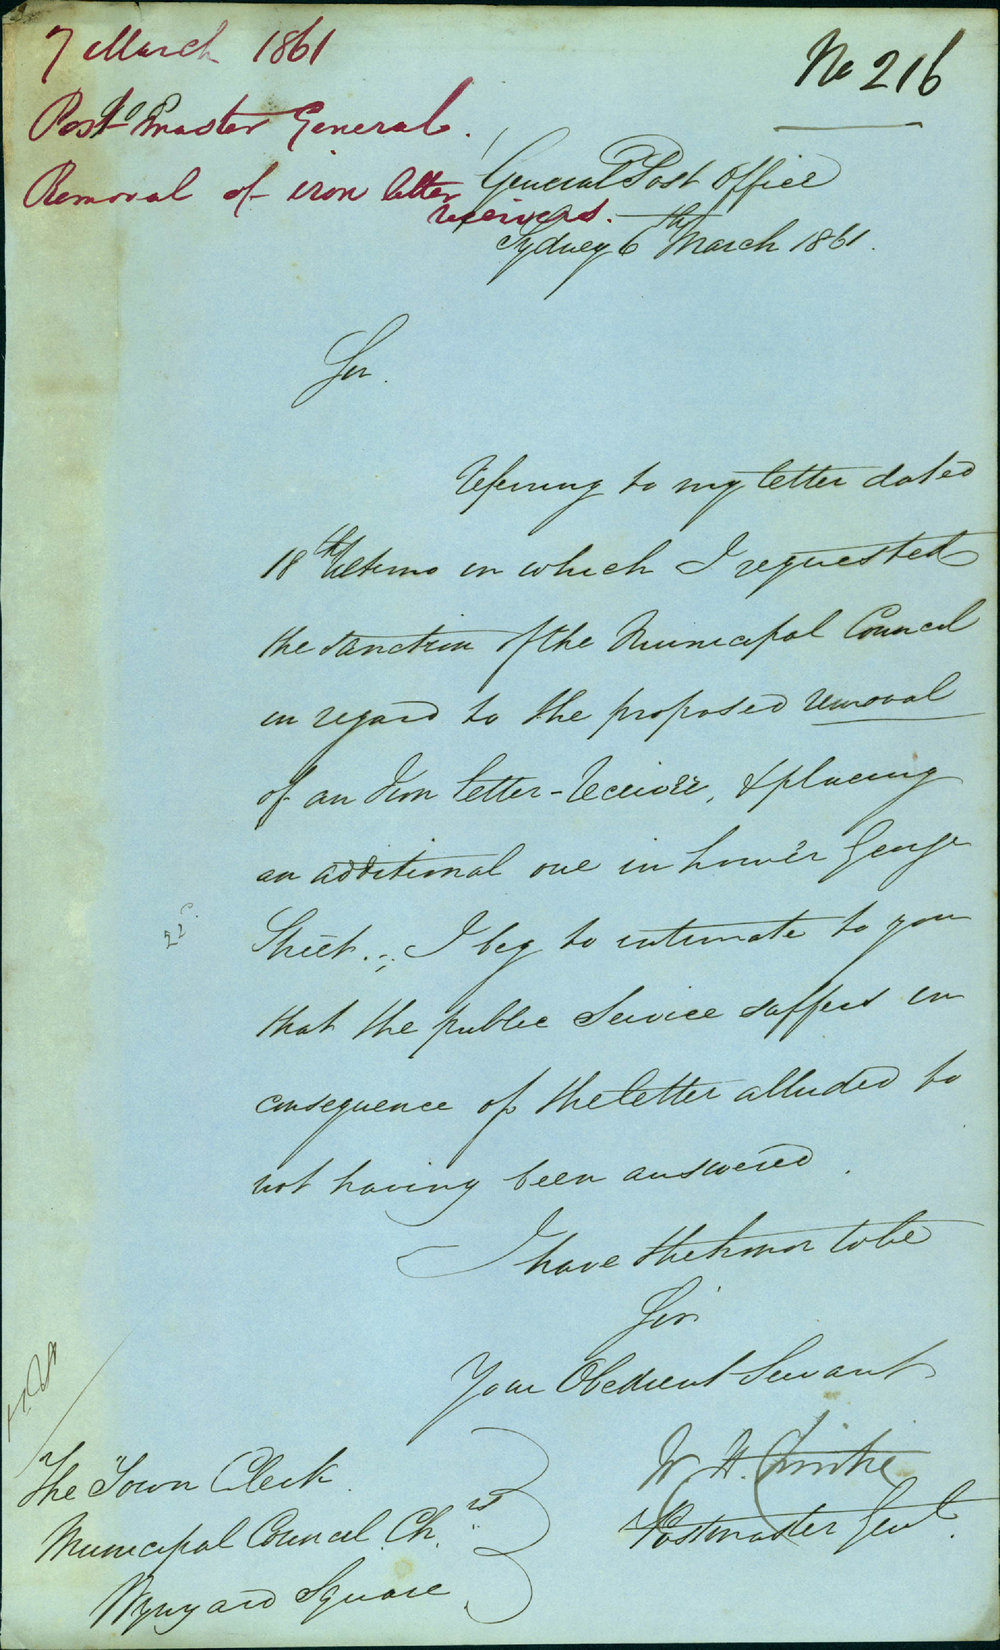 7 March 1861
Post Master General.
Removal of iron letter
receivers.
No 216
General Post Office
Sydney 6th March 1861.
Sir.
Referring to my letter dated
18th Ultimo in which I requested
the sanction of the Municipal Council
in regard to the proposed removal
of an Iron letter-receiver, & placing
an additional one in Lower George
Street. I beg to intimate to you
that the public Service suffers in
consequence of the letter alluded to
not having been answered.
I have the honor to be
Sir
Your Obedient Servant
W. H. Christie
Postmaster Genl.
The Town Clerk
Municipal Council Ch.rs
Wynyard Square